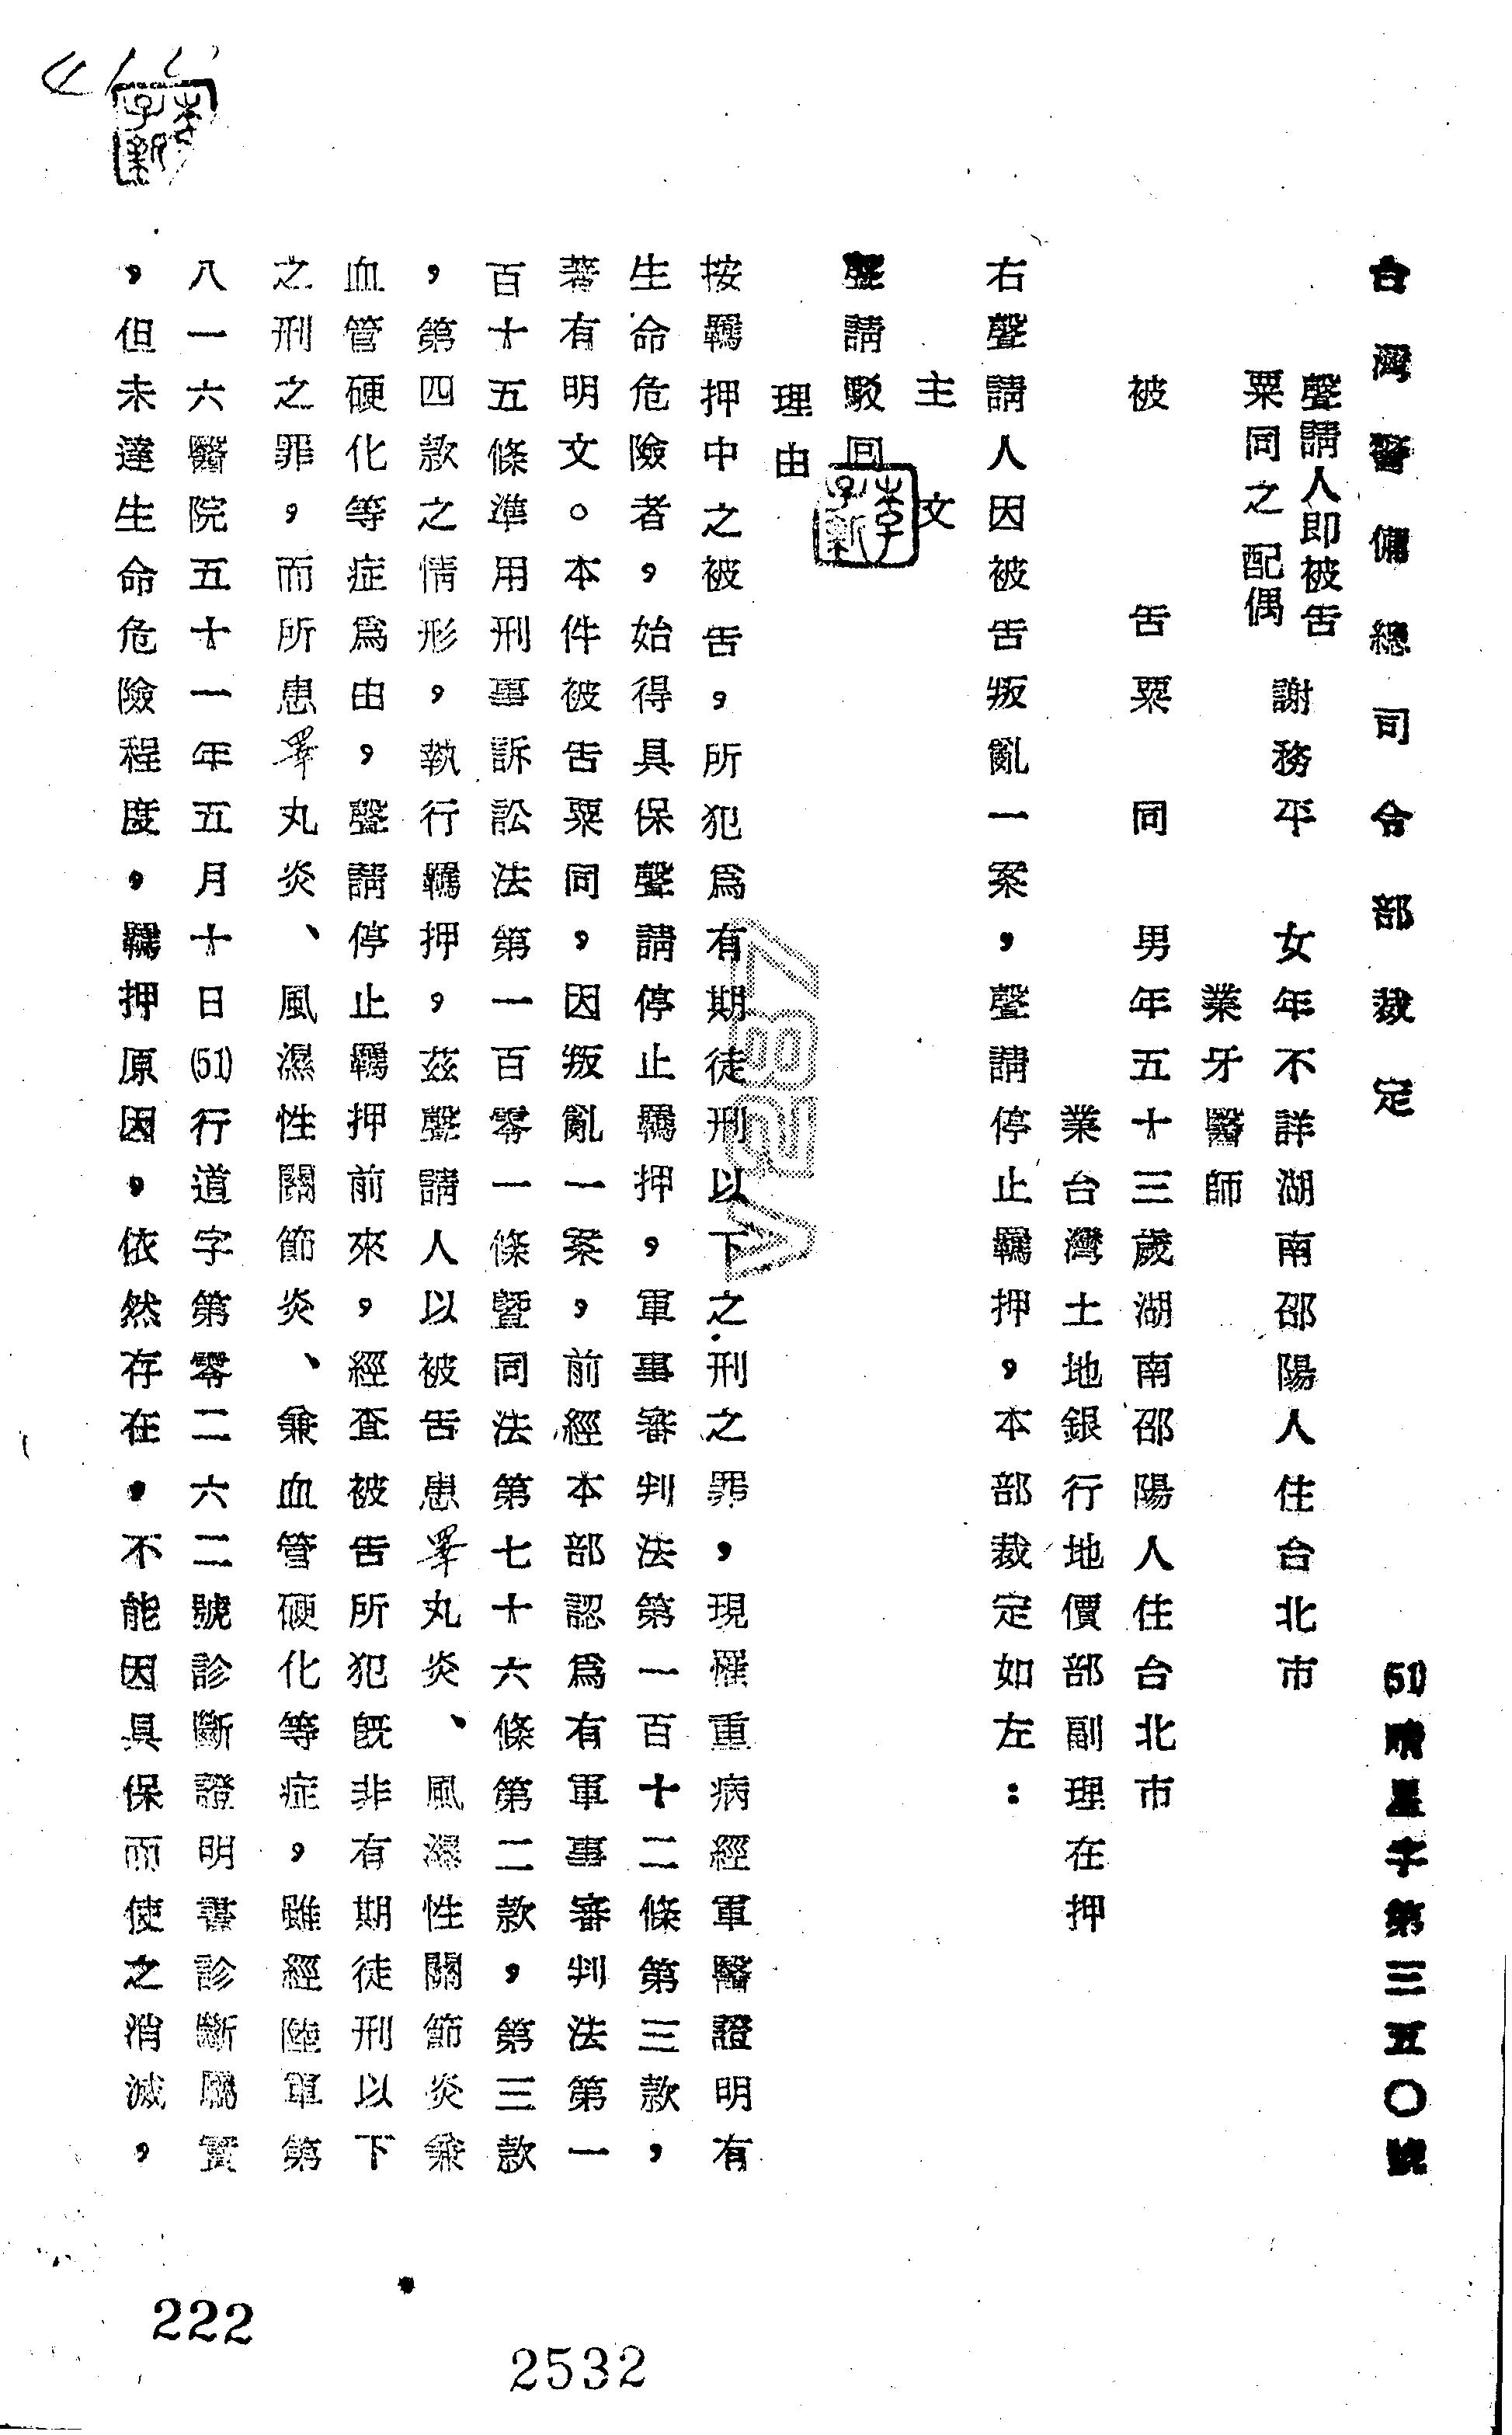 台灣警備總司令部裁定
(51)晴星字第三五〇號
聲請人即被告
粟同之配偶
謝務平 女年不詳湖南邵陽人住台北市
業牙醫師
被告粟同 男年五十三歲湖南邵陽人住台北市
業台灣土地銀行地價部副理在押
右聲請人因被告叛亂一案,聲請停止羈押,本部裁定如左:
主文
聲請駁回
理由
按羈押中之被告,所犯為有期徒刑以下之刑之罪,現罹重病經軍醫證明有
生命危險者,始得具保聲請停止羈押,軍事審判法第一百十二條第三款,
著有明文。本件被告粟同,因叛亂一案,前經本部認為有軍事審判法第一
百十五條準用刑事訴訟法第一百零一條暨同法第七十六條第二款,第三款
,第四款之情形,執行羈押,茲聲請人以被告患睪丸炎、風濕性關節炎兼
血管硬化等症為由,聲請停止羈押前來,經查被告所犯既非有期徒刑以下
之刑之罪,而所患睪丸炎、風濕性關節炎、兼血管硬化等症,雖經陸軍第
八一六醫院五十一年五月十日(51)行道字第零二六二號診斷證明書診斷屬實
,但未達生命危險程度,羈押原因,依然存在,不能因具保而使之消滅,
李子新
李子新
V287
222
2532